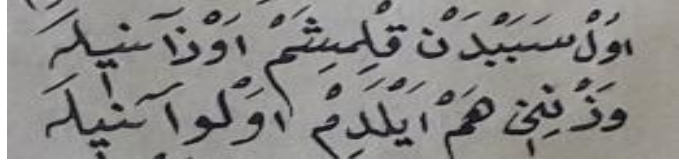 اوُلْ سَبَبْدَنْ قِلْمِشَمْ اَوْزاَنیلَه
وَزْنِنِی هَمْ اَیْلَدِمْ اَوْلواَنیلَه